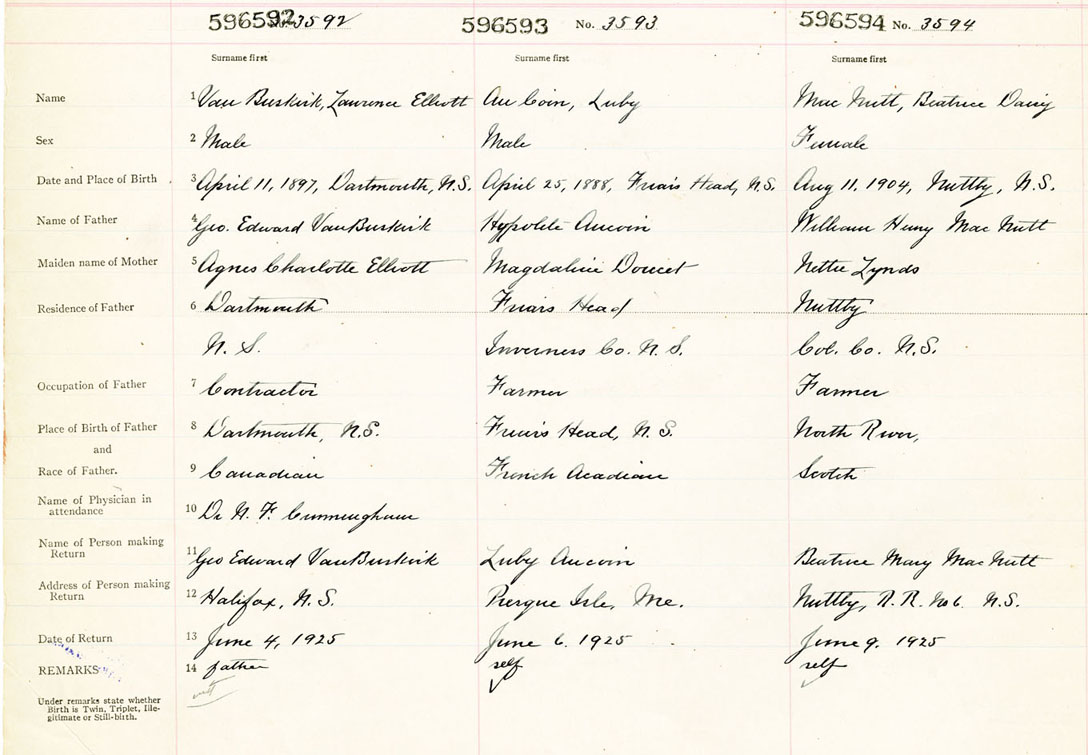 596592 No. 3592 596593 No. 3593 596594 No. 3594
Surname first Surname first Surname first
Name 1 Van Buskirk, Lawrence Elliott Au Coin, Luby Mac Nutt, Beatrice Daisy
Sex 2 Male Male Female
Date and Place of Birth 3 April 11, 1897, Dartmouth, N.S. April 25, 1888, Friar's Head, N.S. Aug 11, 1904, Nuttby, N.S.
Name of Father 4 Geo. Edward VanBuskirk Hypolite Aucoin William Henry Mac Nutt
Maiden name of Mother 5 Agnes Charlotte Elliott Magdaline Doucet Nettie Lynds
Residence of Father 6 Dartmouth Friars Head Nuttby
N. S. Inverness Co. N. S. Col. Co. N.S.
Occupation of Father 7 Contractor Farmer Farmer
Place of Birth of Father 8 Dartmouth, N.S. Friar's Head, N.S. North River,
and
Race of Father. 9 Canadian French Acadian Scotch
Name of Physician in
attendance 10 Dr N. F. Cunningham
Name of Person making
Return 11 Geo Edward VanBuskirk Luby Aucoin Beatrice Mary Mac Nutt
Address of Person making
Return 12 Halifax, N.S. Presque Isle, Me. Nuttby, R.R. No 6. N.S.
Date of Return 13 June 4, 1925 June 6. 1925 June 9. 1925
REMARKS 14 father self self
Under remarks state whether
Birth is Twin, Triplet, Ille-
gitimate or Still-birth.